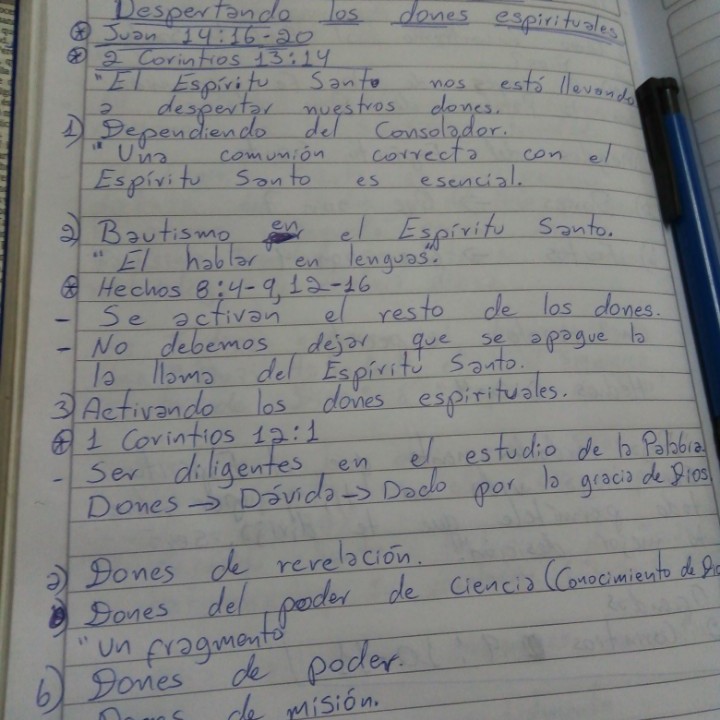 Despertando los dones espirituales
⊛ Juan 14:16-20
⊛ 2 Corintios 13:14
"El Espíritu Santo nos está llevando
a despertar nuestros dones.
1) Dependiendo del Consolador.
"Una comunión correcta con el
Espíritu Santo es esencial.
2) Bautismo en el Espíritu Santo.
"El hablar en lenguas".
⊛ Hechos 8:4-9, 12-16
- Se activan el resto de los dones.
- No debemos dejar que se apague la
la llama del Espíritu Santo.
3) Activando los dones espirituales.
⊛ 1 Corintios 12:1
- Ser diligentes en el estudio de la Palabra.
Dones → Dávida → Dado por la gracia de Dios
a) Dones de revelación.
Dones del poder de ciencia (Conocimiento de Dio
"un fragmento"
b) Dones de poder.
Dones de misión.